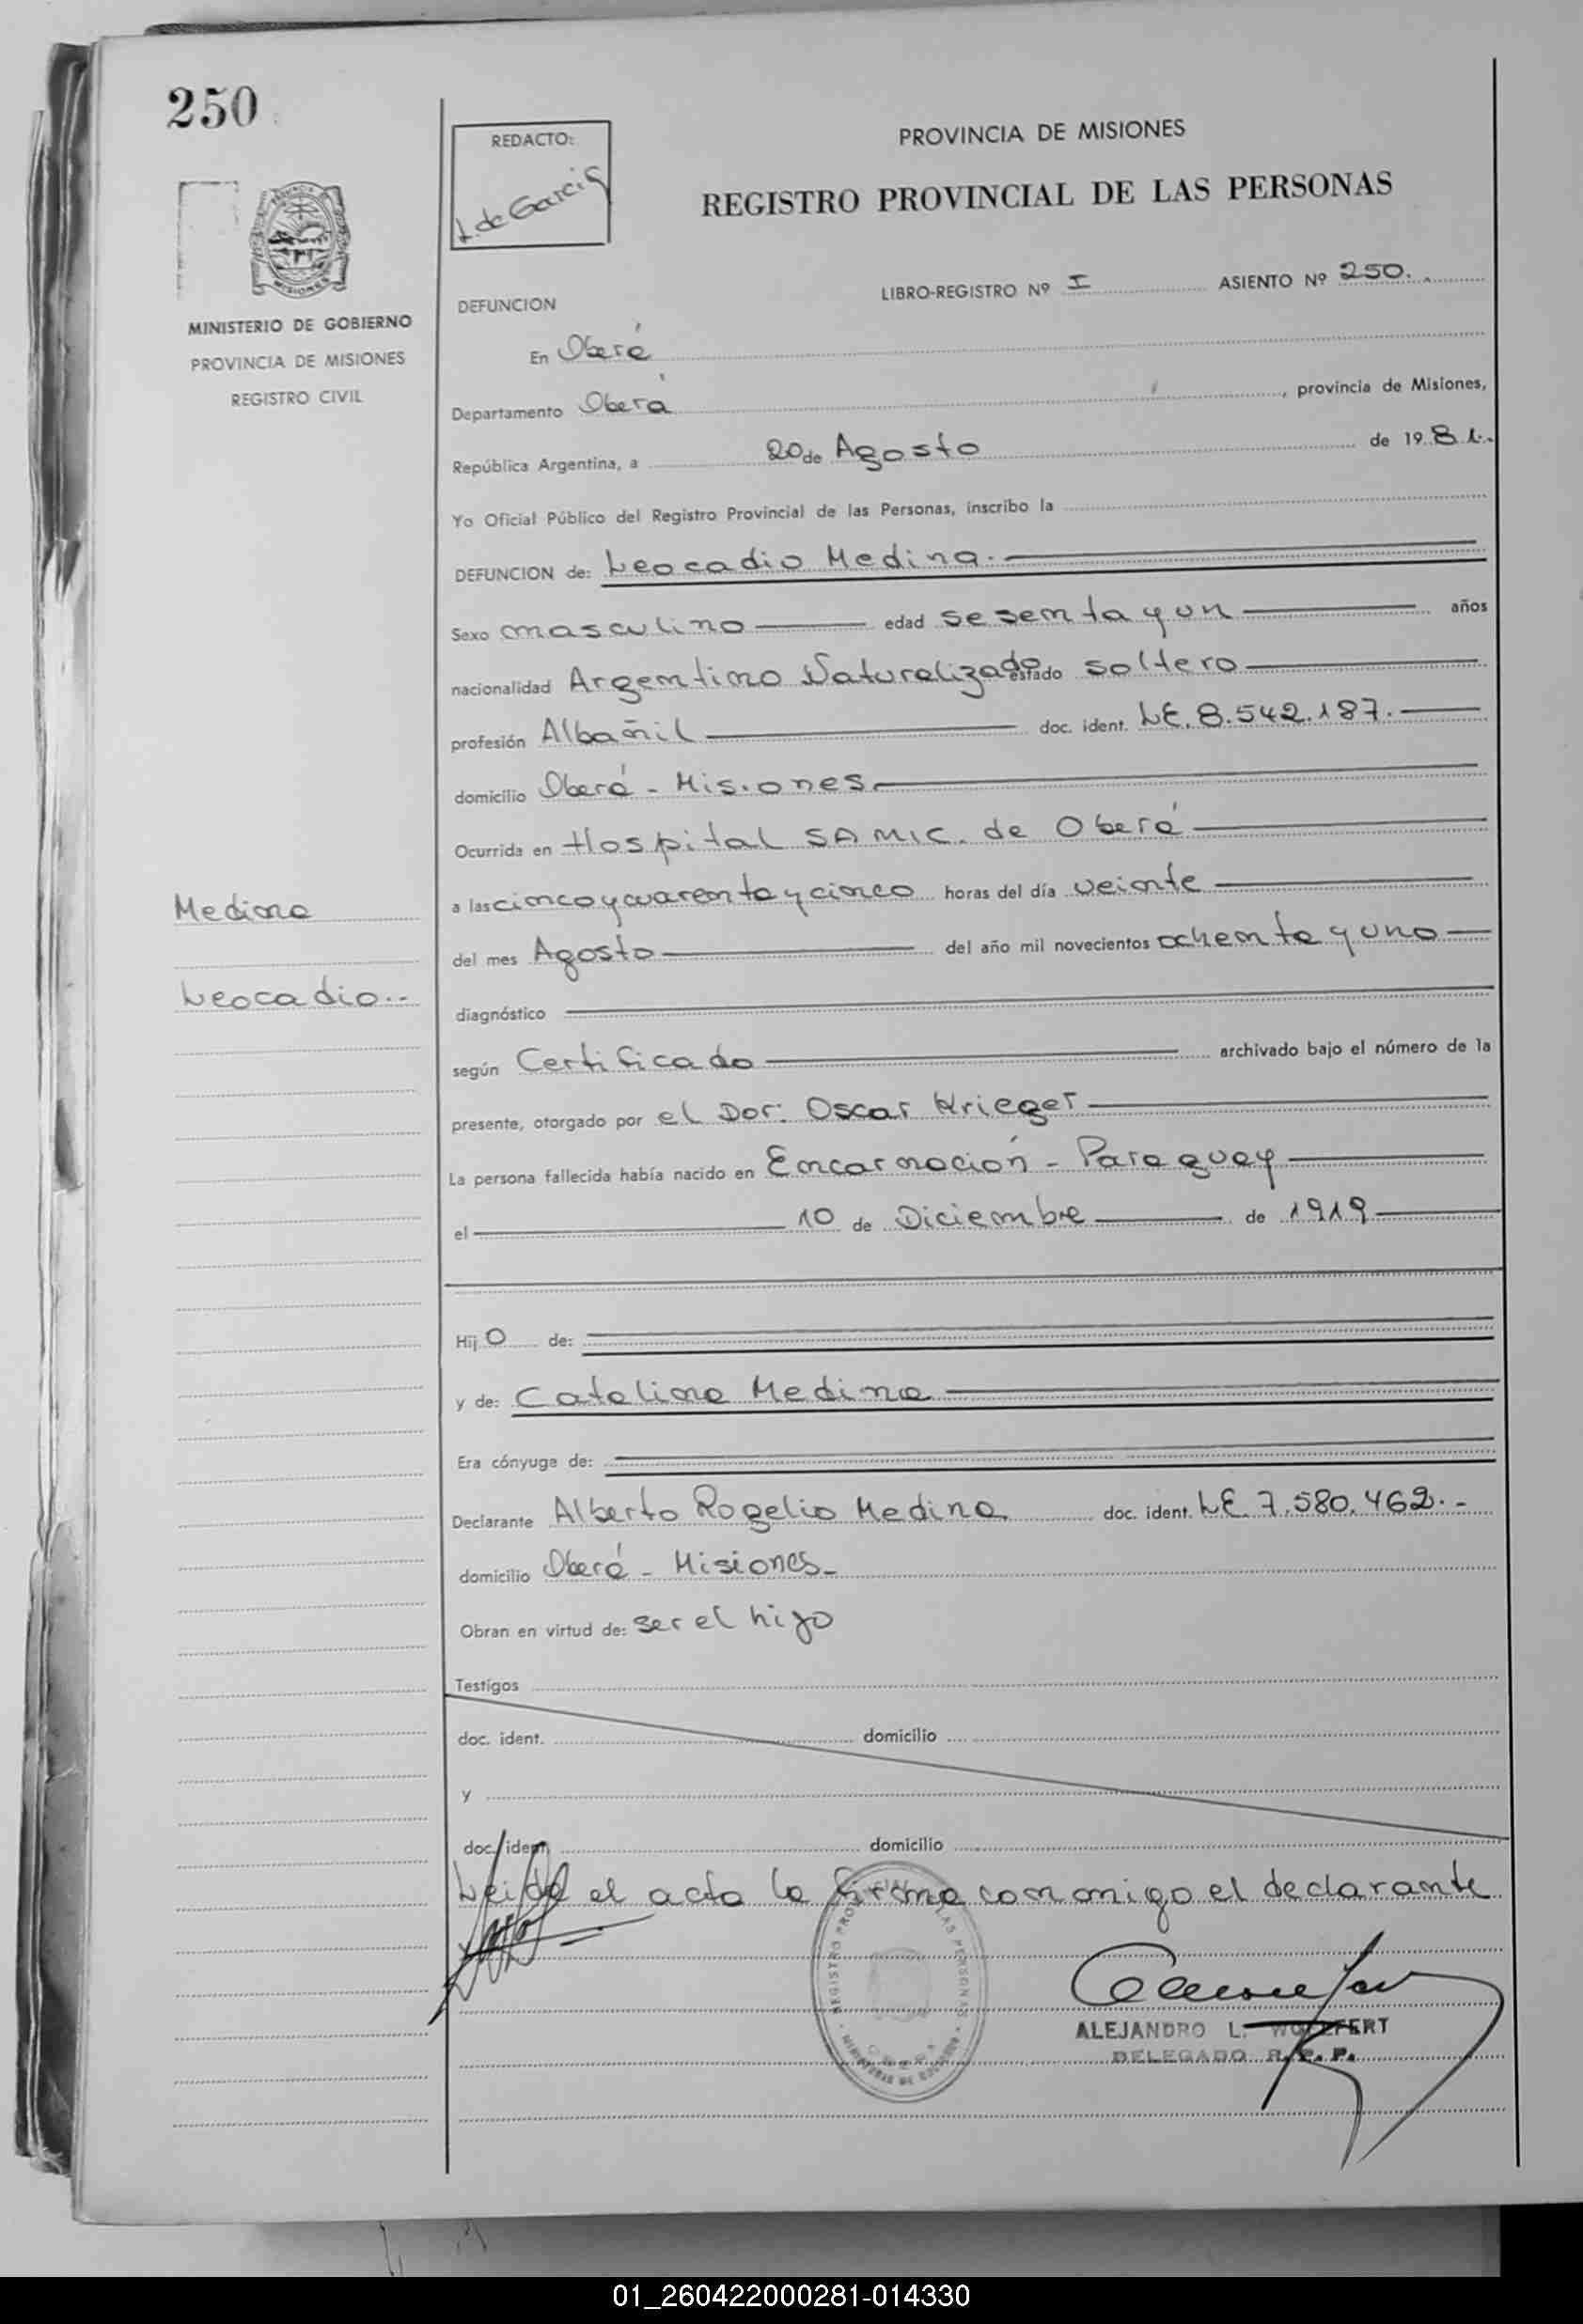 250
REDACTO:
L. de Garcia
PROVINCIA DE MISIONES
REGISTRO PROVINCIAL DE LAS PERSONAS
MISIONES
MINISTERIO DE GOBIERNO
PROVINCIA DE MISIONES
REGISTRO CIVIL
DEFUNCION LIBRO-REGISTRO Nº I ASIENTO Nº 250.
En Oberá
Departamento Oberá, provincia de Misiones,
República Argentina, a 20 de Agosto de 1981.
Yo Oficial Público del Registro Provincial de las Personas, inscribo la
DEFUNCION de: Leocadio Medina.
Sexo masculino edad sesenta y un años
nacionalidad Argentino Naturalizado estado soltero
profesión Albañil doc. ident. LE. 8.542.187.
domicilio Oberá - Misiones
Ocurrida en Hospital SAMIC. de Oberá
a las cinco y cuarenta y cinco horas del día veinte
del mes Agosto del año mil novecientos ochenta y uno
Medina
Leocadio..
diagnóstico
según Certificado archivado bajo el número de la
presente, otorgado por el Dor: Oscar Krieger
La persona fallecida había nacido en Encarnación - Paraguay
el 10 de Diciembre de 1919
Hijo de:
y de: Catalina Medina
Era cónyuge de:
Declarante Alberto Rogelio Medina doc. ident. LE. 7.580.462.-
domicilio Oberá - Misiones-
Obran en virtud de: ser el hijo
Testigos
doc. ident. domicilio
y
doc. ident. domicilio
Leida el acta la firma conmigo el declarante
ALEJANDRO L. WOLFFERT
DELEGADO R. P. P.
01_260422000281-014330